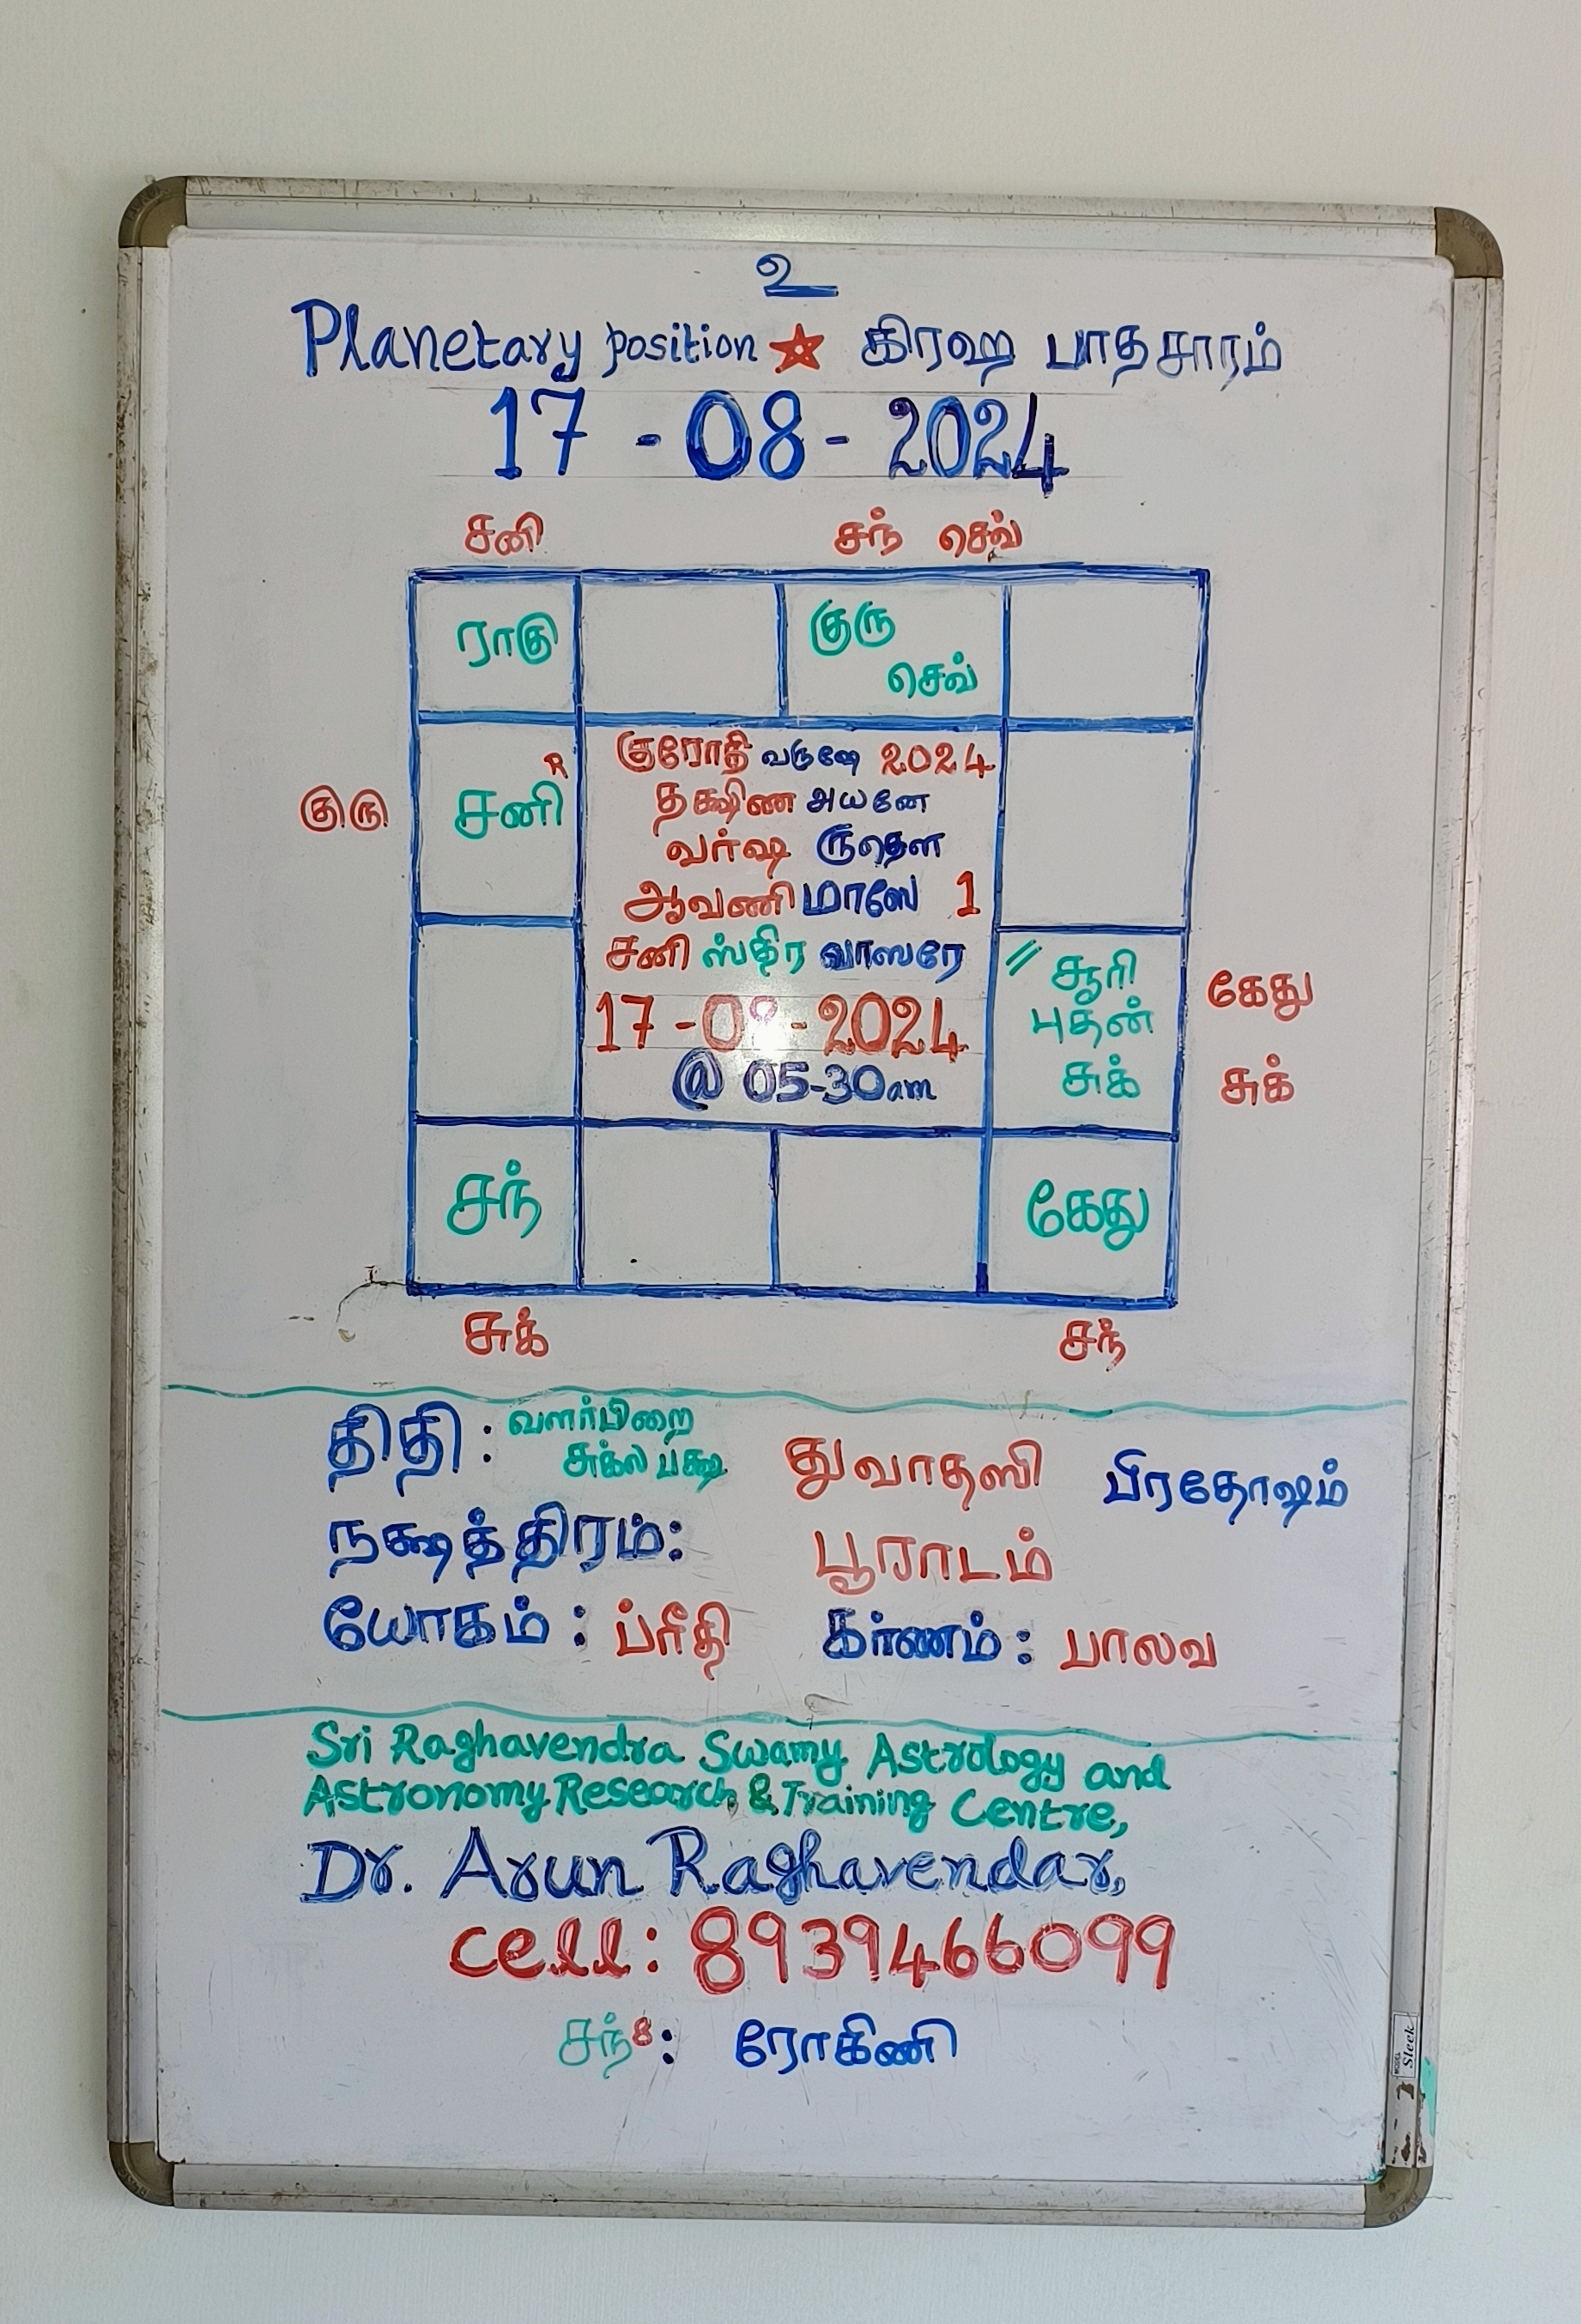 உ
Planetary position ☆ கிரஹ பாதசாரம்
17-08-2024
சனி சந் செவ்
ராகு குரு
செவ்
குரோதி வருஷே 2024
R
தக்ஷிண அயனே
குரு சனி
வர்ஷ ருதௌ
ஆவணி மாஸே 1
சனி ஸ்திர வாஸரே
// சூரி கேது
புதன்
17-08-2024
@ 05-30am
சுக் சுக்
சந் கேது
சுக் சந்
திதி: வளர்பிறை
சுக்ல பக்ஷ துவாதஸி பிரதோஷம்
நக்ஷத்திரம்: பூராடம்
யோகம்: ப்ரீதி கர்ணம்: பாலவ
Sri Raghavendra Swamy Astrology and
Astronomy Research & Training Centre,
Dr. Arun Raghavendar,
cell: 8939466099
சந்8: ரோகிணி
MODEL Sleek